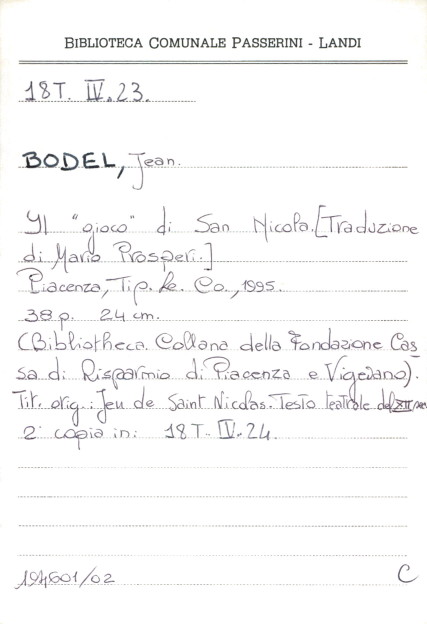 BIBLIOTECA COMUNALE PASSERINI - LANDI
18T. IV.23.
BODEL, Jean.
Il "gioco" di San Nicola.[Traduzione
di Mario Prosperi.]
Piacenza, Tip. Le. Co., 1995.
38 p. 24 cm.
(Bibliotheca. Collana della Fondazione Cas_
sa di Risparmio di Piacenza e Vigevano).
Tit. orig.: Jeu de Saint Nicolas. Testo teatrale del XII sec
2ª copia in: 18T. IV.24.
194601/02 C